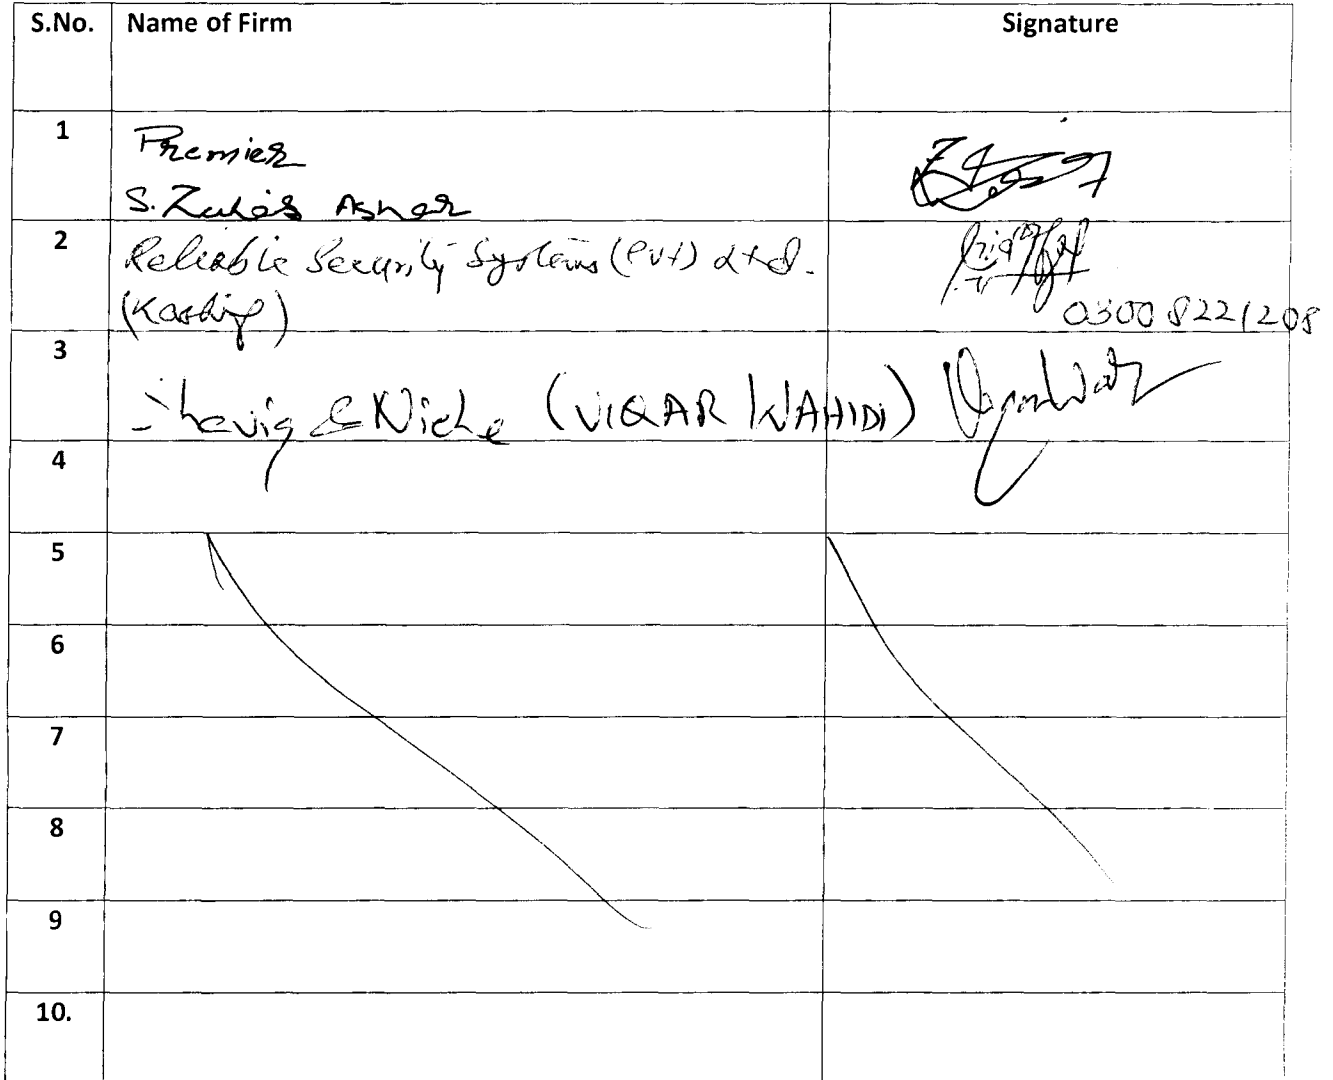 S.No. Name of Firm Signature
1 Premier
S. Asghar
2 Reliable Security Systems (Pvt) Ltd.
(Kashif)
0300 8221208
3
& Niche (VIQAR WAHIDI)
4
5
6
7
8
9
10.